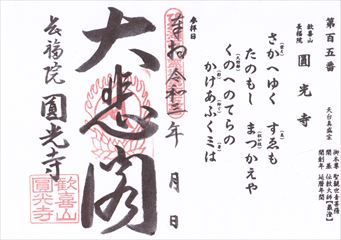 第百五番
歓喜山
長福院
圓光寺
天台真盛宗
御本尊 聖観世音菩薩
開基 伝教大師【最澄】
開創年 延暦年間
さかへゆく すゑも
たのもし まつかえや
くのへのてらの
かけあふくミは
参拝日
奉拝 令和三年 月 日
大悲閣
長福院 圓光寺
歓喜山
圓光寺